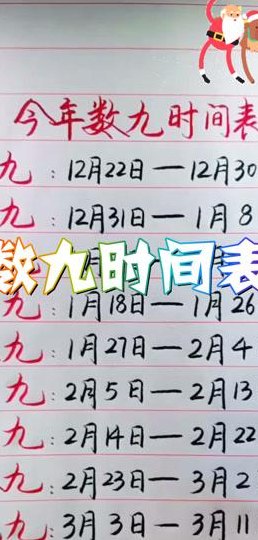 今年数九时间表
九：12月22日—12月30
九：12月31日—1月8
数九时间表
九：1月18日—1月26
九：1月27日—2月4
九：2月5日—2月13
九：2月14日—2月22
九：2月23日—3月2
九：3月3日—3月11